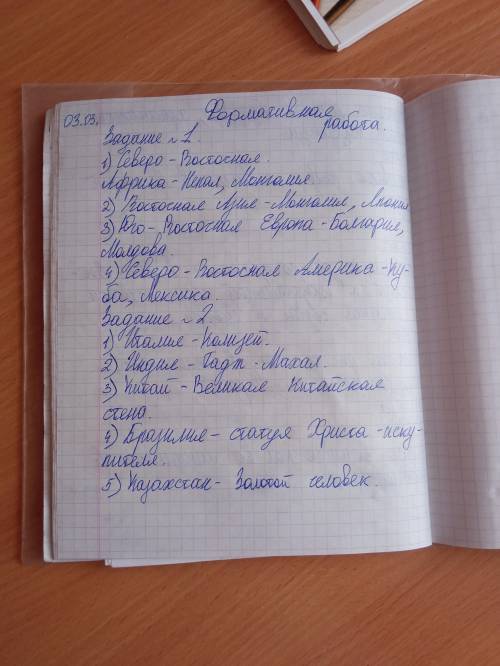 03.03. Формативная
работа.
Задание №1.
1) Северо-Восточная.
Африка-Непал, Монголия.
2) Восточная Азия-Монголия, Япония
3) Юго-Восточная Европа-Болгария,
Молдова.
4) Северо-Восточная Америка-Ку-
ба, Мексика.
Задание №2.
1) Италия-Колизей.
2) Индия-Тадж-Махал.
3) Китай-Великая Китайская
стена.
4) Бразилия-статуя Христа-иску-
пителя.
5) Казахстан-Золотой человек.